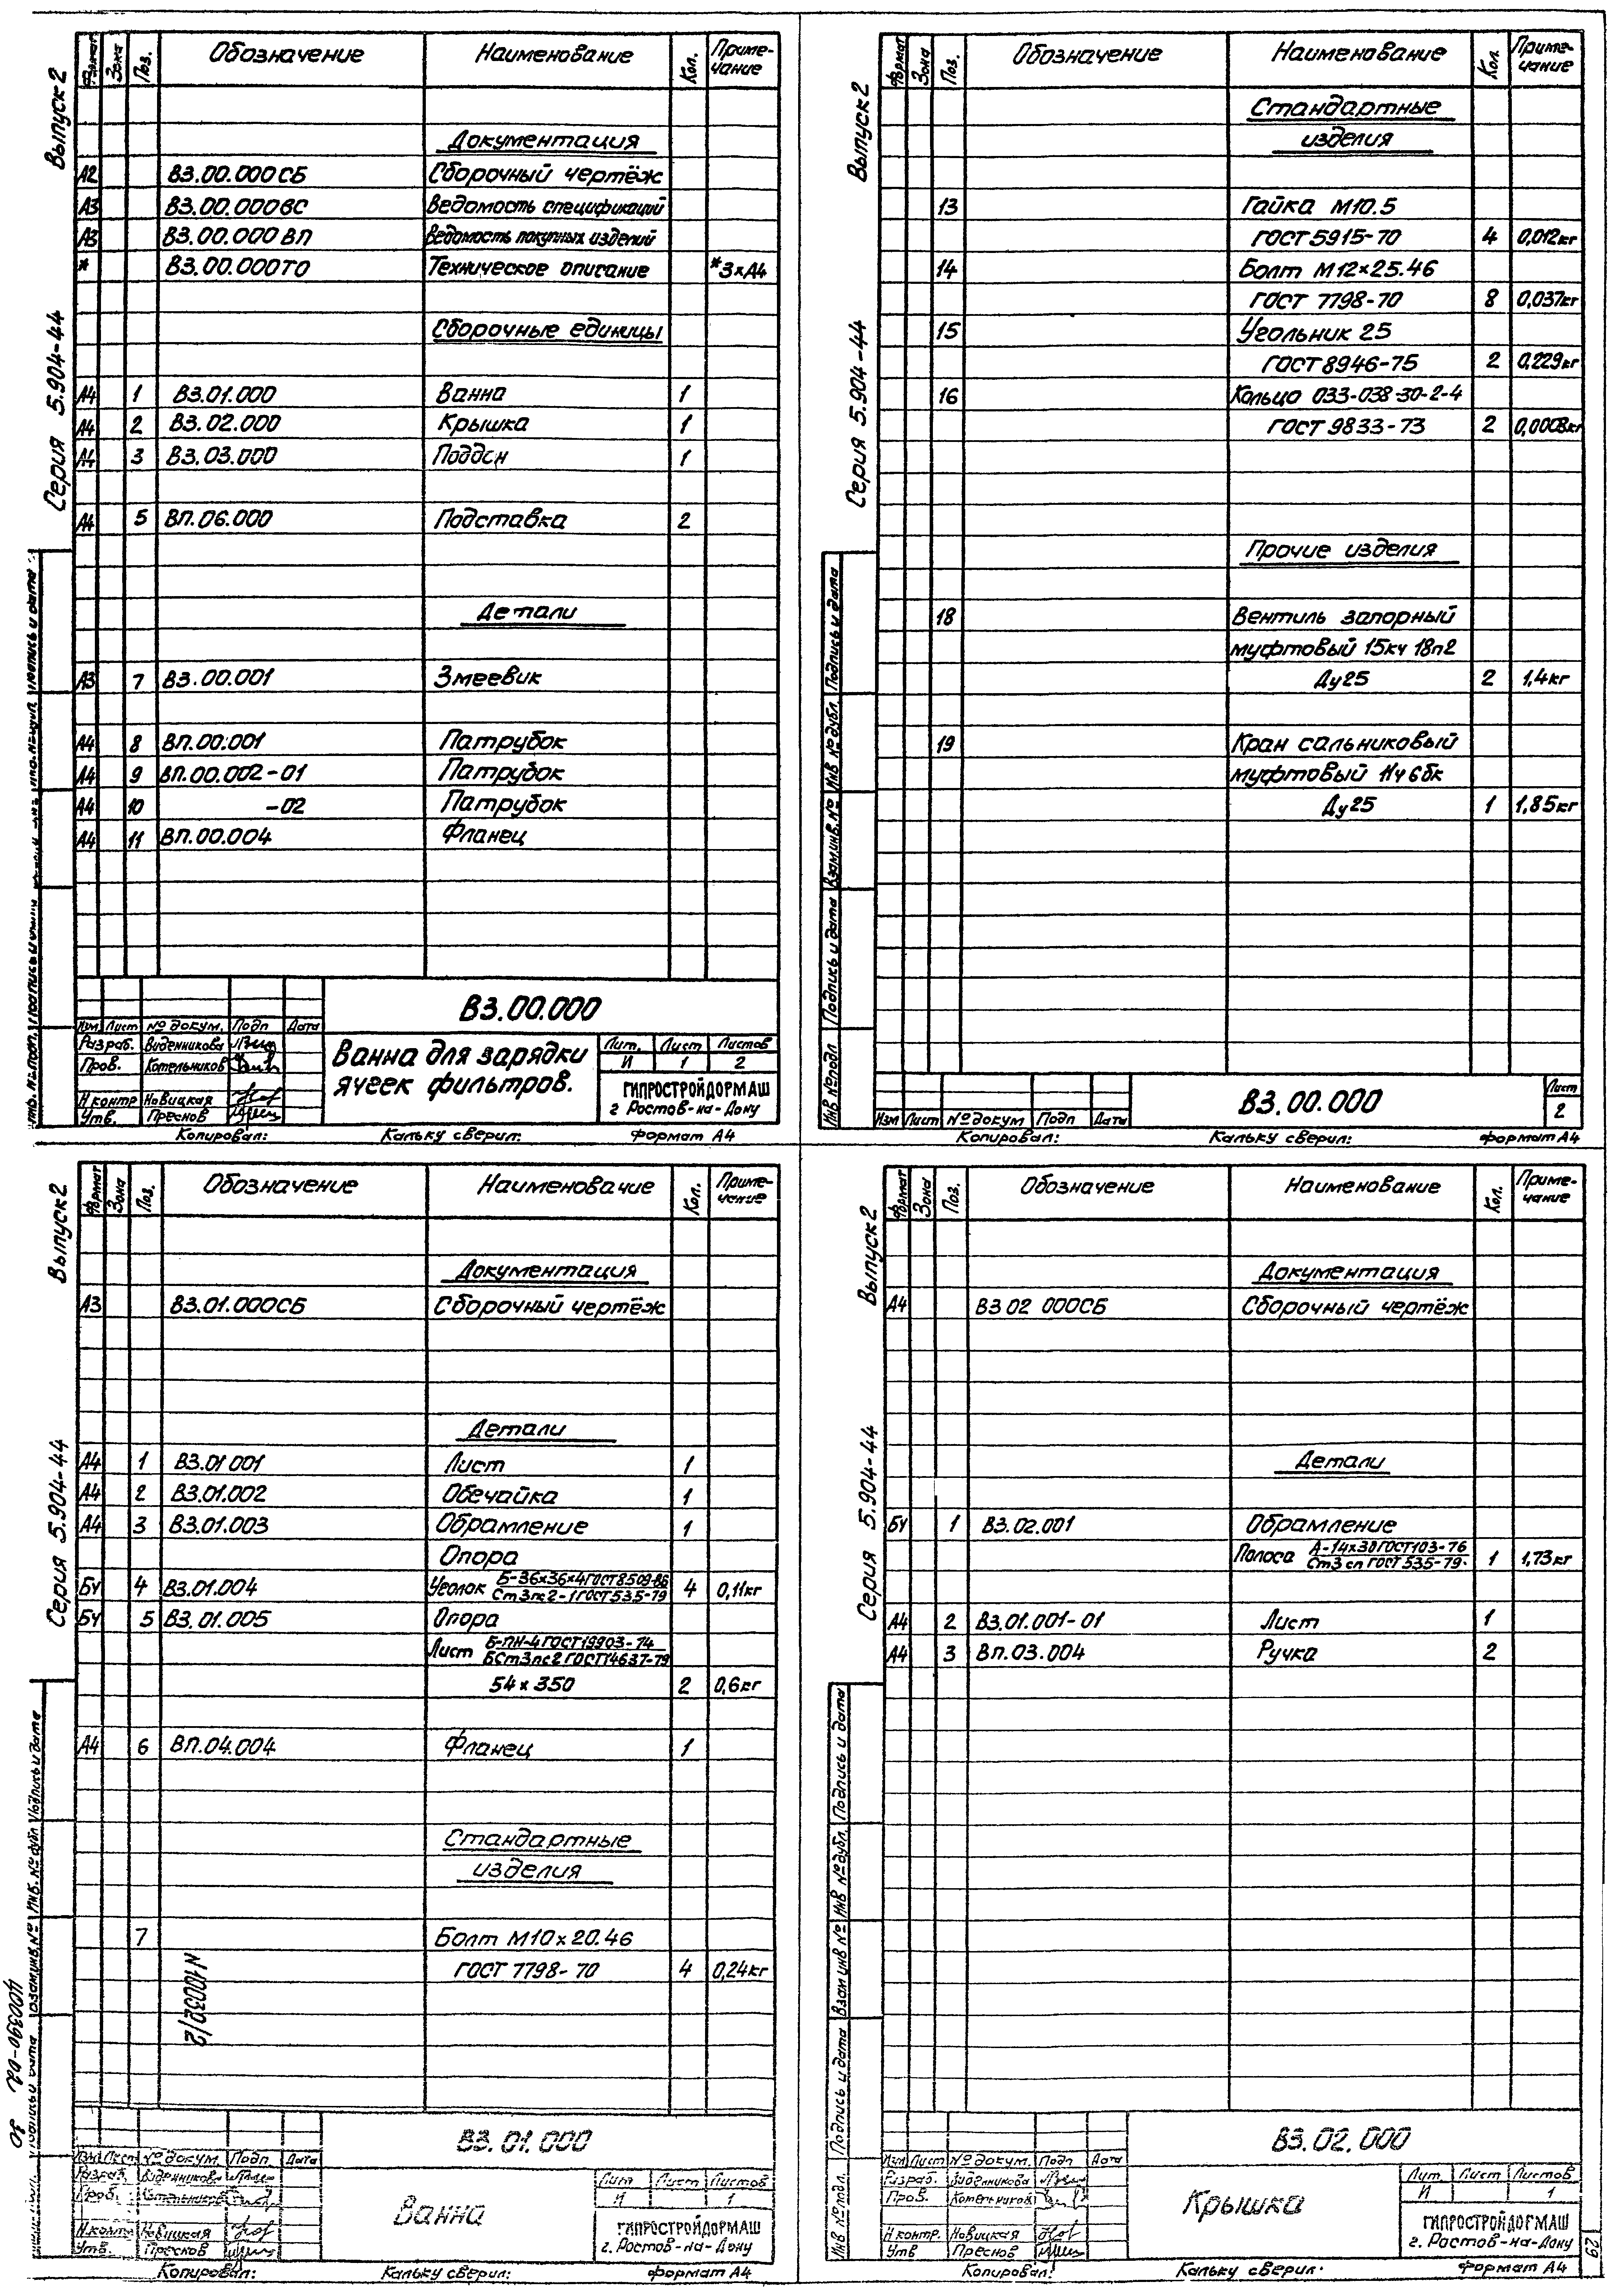 Выпуск 2
Серия 5.904-44
Формат Зона Поз. Обозначение Наименование Кол. Приме-
чание
Документация
А2 ВЗ.00.000СБ Сборочный чертёж
А3 ВЗ.00.000ВС Ведомость спецификаций
А3 ВЗ.00.000ВП Ведомость покупных изделий
* ВЗ.00.000ТО Техническое описание *3×А4
Сборочные единицы
А4 1 ВЗ.01.000 Ванна 1
А4 2 ВЗ.02.000 Крышка 1
А4 3 ВЗ.03.000 Поддон 1
А4 5 ВП.06.000 Подставка 2
Детали
А3 7 ВЗ.00.001 Змеевик
А4 8 ВП.00.001 Патрубок
А4 9 ВП.00.002-01 Патрубок
А4 10 -02 Патрубок
А4 11 ВП.00.004 Фланец
ВЗ.00.000
Изм Лист № докум. Подп Дата
Разраб. Виденникова
Пров. Котельников
Н контр Новицкая
Утв. Преснов
Ванна для зарядки
ячеек фильтров.
Лит. Лист Листов
И 1 2
ГИПРОСТРОЙДОРМАШ
г Ростов-на-Дону
Копировал: Кальку сверил: Формат А4
Выпуск 2
Серия 5.904-44
Формат Зона Поз. Обозначение Наименование Кол. Приме-
чание
Стандартные
изделия
13 Гайка М10.5
ГОСТ 5915-70 4 0,012кг
14 Болт М12×25.46
ГОСТ 7798-70 8 0,037кг
15 Угольник 25
ГОСТ 8946-75 2 0,229кг
16 Кольцо 033-038-30-2-4
ГОСТ 9833-73 2 0,0008кг
Прочие изделия
18 Вентиль запорный
муфтовый 15кч 18п2
Ду25 2 1,4кг
19 Кран сальниковый
муфтовый 11ч 6бк
Ду25 1 1,85кг
Инв № подл Подпись и дата Взам.инв.№ Инв № дубл. Подпись и дата
Изм Лист № докум Подп Дата
ВЗ.00.000
Лист
2
Копировал: Кальку сверил: Формат А4
Выпуск 2
Серия 5.904-44
Формат Зона Поз. Обозначение Наименование Кол. Приме-
чение
Документация
А3 ВЗ.01.000СБ Сборочный чертёж
Детали
А4 1 ВЗ.01 001 Лист 1
А4 2 ВЗ.01.002 Обечайка 1
А4 3 ВЗ.01.003 Обрамление 1
Опора
БЧ 4 ВЗ.01.004 Уголок Б-36×36×4 ГОСТ 8509-86 4 0,11кг
Ст3пс2-1 ГОСТ 535-79
БЧ 5 ВЗ.01.005 Опора
Лист Б-ПН-4 ГОСТ 19903-74
БСт3пс2 ГОСТ 14637-79
54×350 2 0,6кг
А4 6 ВП.04.004 Фланец 1
Стандартные
изделия
7 Болт М10×20.46
ГОСТ 7798-70 4 0,24кг
N10032/2
ВЗ.01.000
Изм Лист № докум. Подп. Дата
Разраб. Виденникова
Пров. Котельников
Н.контр Новицкая
Утв. Преснов
Ванна
Лит Лист Листов
И 1
ГИПРОСТРОЙДОРМАШ
г. Ростов-на-Дону
Копировал: Кальку сверил: Формат А4
Выпуск 2
Серия 5.904-44
Формат Зона Поз. Обозначение Наименование Кол. Приме-
чание
Документация
А4 ВЗ 02 000СБ Сборочный чертёж
Детали
БЧ 1 ВЗ.02.001 Обрамление
Полоса А-14×30 ГОСТ 103-76 1 1,73кг
Ст3 сп ГОСТ 535-79
А4 2 ВЗ.01.001-01 Лист 1
А4 3 ВП.03.004 Ручка 2
Инв № подл. Подпись и дата Взам инв № Инв № дубл. Подпись и дата
ВЗ.02.000
Изм Лист № докум. Подп Дата
Разраб. Виденникова
Пров. Котельников
Н контр. Новицкая
Утв Преснов
Крышка
Лит Лист Листов
И 1
ГИПРОСТРОЙДОРМАШ
г. Ростов-на-Дону
Копировал: Кальку сверил: Формат А4
29